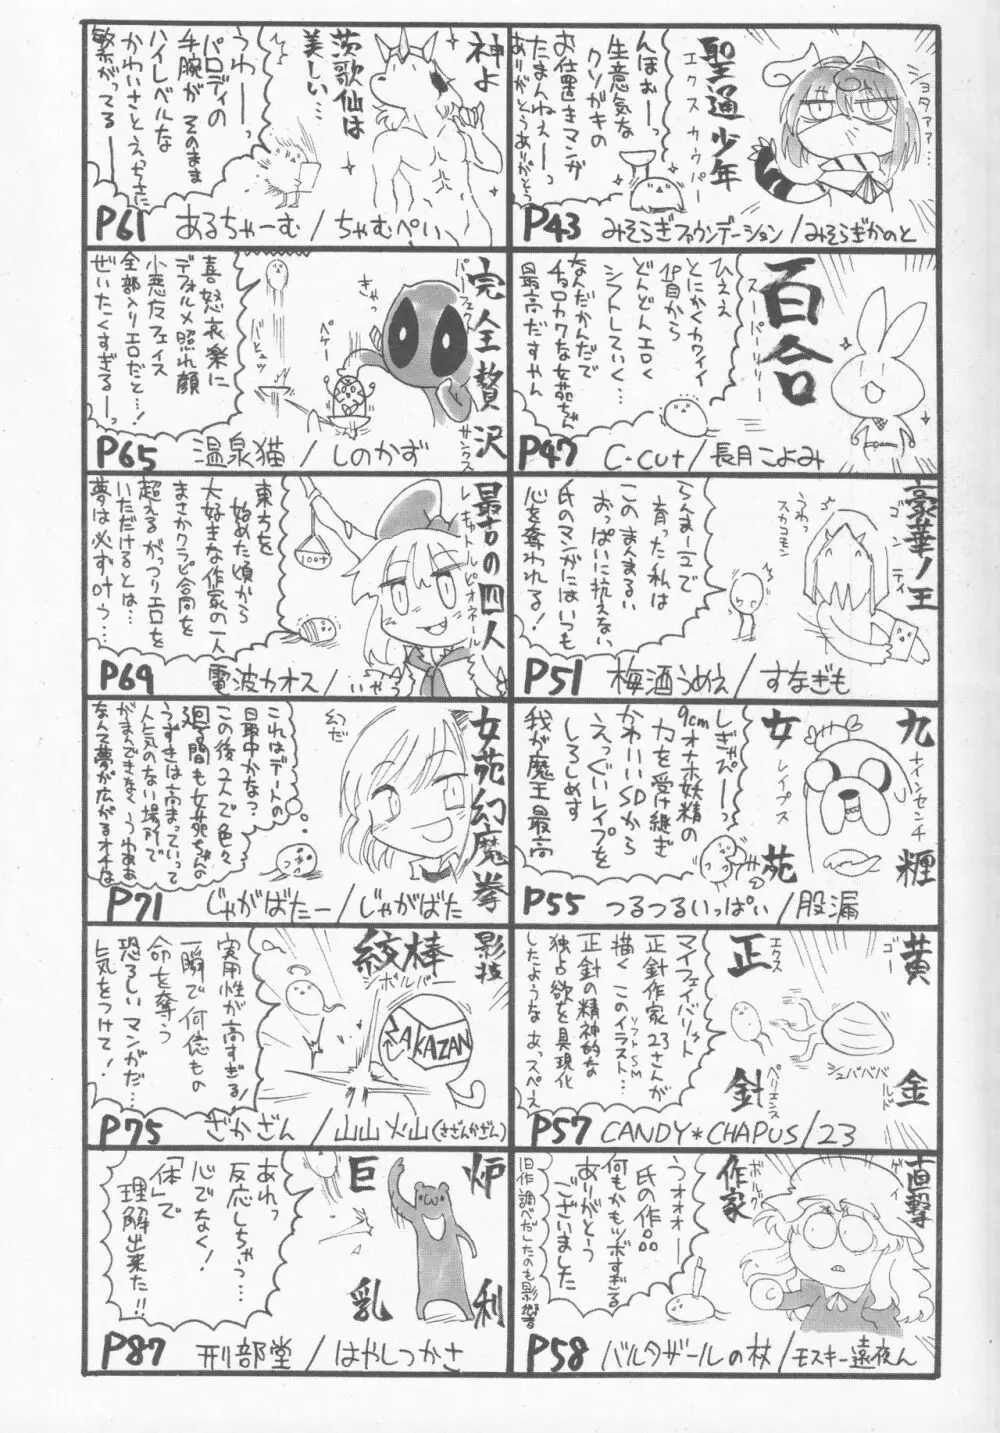 聖通少年
エクスカウパー
ヨタアア…
んほぉーっ
生意気な
クソガキの
お仕置きマンガ
たまんねぇーっ
ありがとうありがとう
P43 みそらぎファウンデーション/みそらぎかのと
百合
スーパーリリー
ひええ
とにかくカワイイ
1P目から
どんどんエロく
シフトしていく…
なんだかんだで
チョロカワな女苑ちゃん
最高だすやん
P47 C-cut/長月こよみ
豪華ノ王
うわっ
スカコモン
らんま1/2で
育った私は
このまんまるい
おっぱいに抗えない
氏のマンガにはいつも
心を奪われる!
P51 梅酒うめえ/すなぎも
九糎
ナインセンチ
女苑
レイプス
しぎゃぴーっ
9cmオナホ妖精の
力を受け継ぎ
かわいいSDから
えっぐいレイプを
しろしめす
我が魔王最高
P55 つるつるいっぱい/股漏
黄金
ゴールド
正針
エクスペリエンス
シュバババ
マイフェイバリット
正針作家23さんが
描くこのイラスト…
ソフトSM
正針の精神的な
独占欲を具現化
したようなあっスペース
P57 CANDY*CHAPUS/23
直撃
ゲイ
作家
ボルグ
うオオオー
氏の作品
何もかもツボすぎる
ありがとう
ございました
旧作調べだしたのも影響
P58 バルタザールの杖/モスキー遠夜ん
神よ
茨歌仙は
美しい…
うわーーっ
パロディの
手腕がそのまま
ハイレベルな
かわいさとえっちさに
繋がってるーー
P61 あるちゃーむ/ちゃむぺい
完全贅沢
パーフェクトサンクス
きゃっ
ペケー
ドヒュッ
喜怒哀楽に
デフォルメ照れ顔
小悪友フェイス
全部入りエロだと…!
ぜいたくすぎるーっ
P65 温泉猫/しのかず
最古の四人
レ・キャトルピオネール
100t
東方を
始めた頃から
大好きな作家の一人
まさかクラピ合同を
超えるがっつりエロを
いただけるとは…
夢は必ず叶う…
P69 電波カオス/いゃぅ
女苑幻魔拳
幻だ
これはデートの
最中かな?
この後2人で色々
廻る間も女苑ちゃんの
うずきは高まっていって
人気のない場所で
がまんできなくうわああ
なんて夢が広がるオチは
P71 じゃがばたー/じゃがばた
影技
絞棒
ジボルバー
ZAKAZAN
実用性が高すぎる!
一瞬で何億もの
命を奪う
恐るしいマンガだ…
気をつけて!
P75 ざかざん/山山火山(さざんかざん)
炉利
巨乳
あれっ
反応しちゃっ…
心でなく!
「体」で
理解出来た!!
P87 刑部堂/はやしつかさ